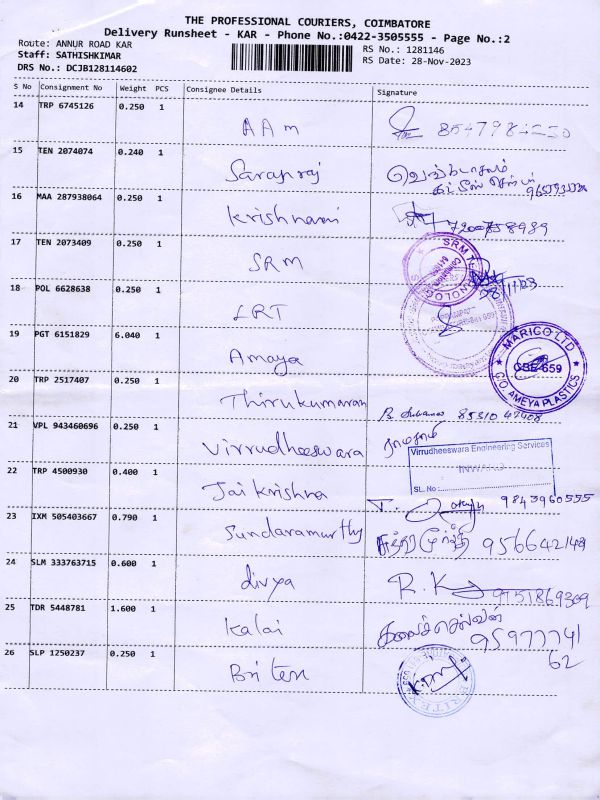 THE PROFESSIONAL COURIERS, COIMBATORE
Delivery Runsheet - KAR - Phone No.:0422-3505555 - Page No.:2
Route: ANNUR ROAD KAR
RS No.: 1281146
Staff: SATHISHKIMAR
RS Date: 28-Nov-2023
DRS No.: DCJB128114602
S No Consignment No Weight PCS Consignee Details Signature
14 TRP 6745126 0.250 1
AAm
15 TEN 2074074 0.240 1
Saravraj
16 MAA 287938064 0.250 1
Krishnami 7200758989
17 TEN 2073409 0.250 1
SRM
18 POL 6628638 0.250 1
LRT
19 PGT 6151829 6.040 1
Amaya
MARICO LTD
CBE-659
C/O AMEYA PLASTICS
20 TRP 2517407 0.250 1
Thirukumaran
21 VPL 943460696 0.250 1
Virrudheeswara
Virrudheeswara Engineering Services
INWARD
SL. No:
22 TRP 4500930 0.400 1
Jai Krishna 9843960555
23 IXM 505403667 0.790 1
Sundaramurthy 9566421484
24 SLM 333763715 0.600 1
divya R.K 9751869309
25 TDR 5448781 1.600 1
Kalai கலைச்செல்வன்
95977741
62
26 SLP 1250237 0.250 1
Briten